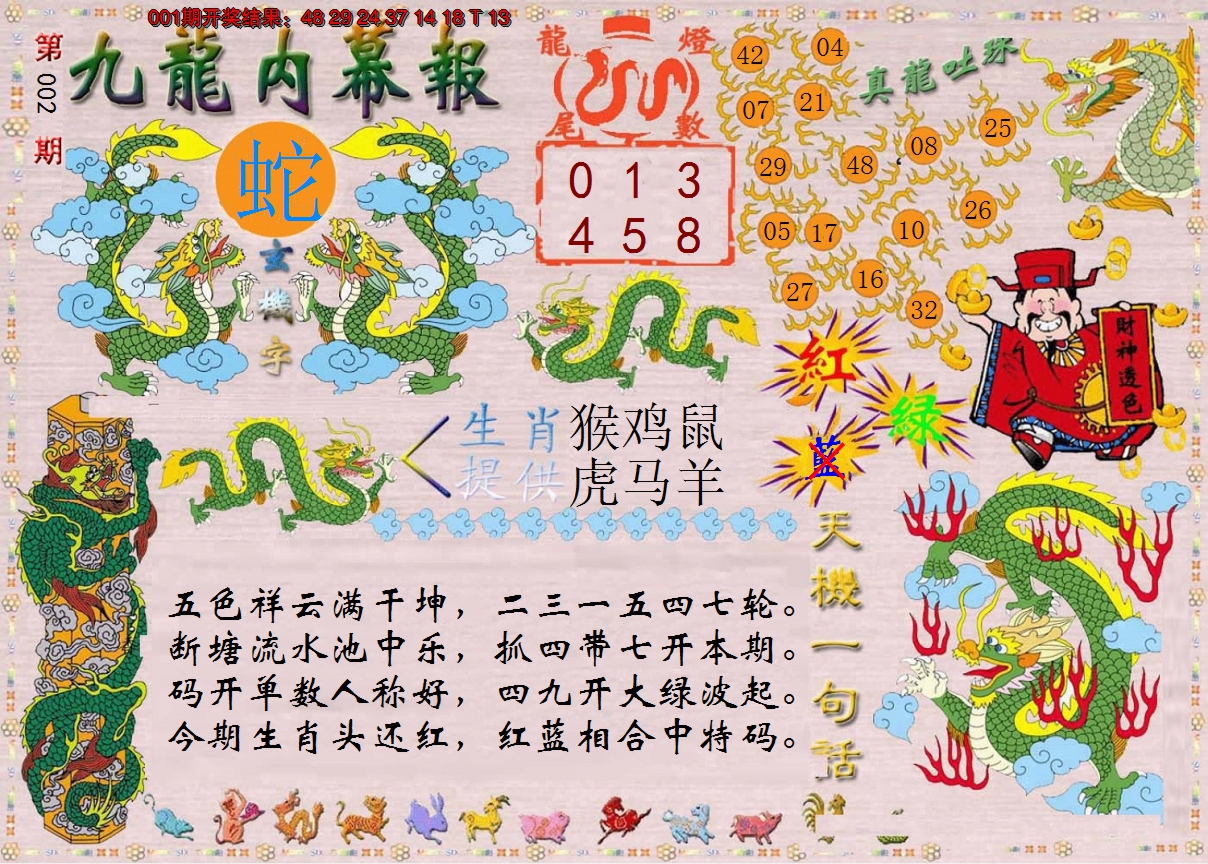 001期开奖结果：48 29 24 37 14 18 T 13
第002期
九龍内幕報
蛇
玄機字
龍燈尾數
0 1 3
4 5 8
真龍吐珠
42 04
07 21
29 48 08 25
05 17 10 26
27 16 32
財神透色
紅
绿
蓝
生肖 猴鸡鼠
提供 虎马羊
天機一句話
五色祥云满干坤，二三一五四七轮。
断塘流水池中乐，抓四带七开本期。
码开单数人称好，四九开大绿波起。
今期生肖头还红，红蓝相合中特码。